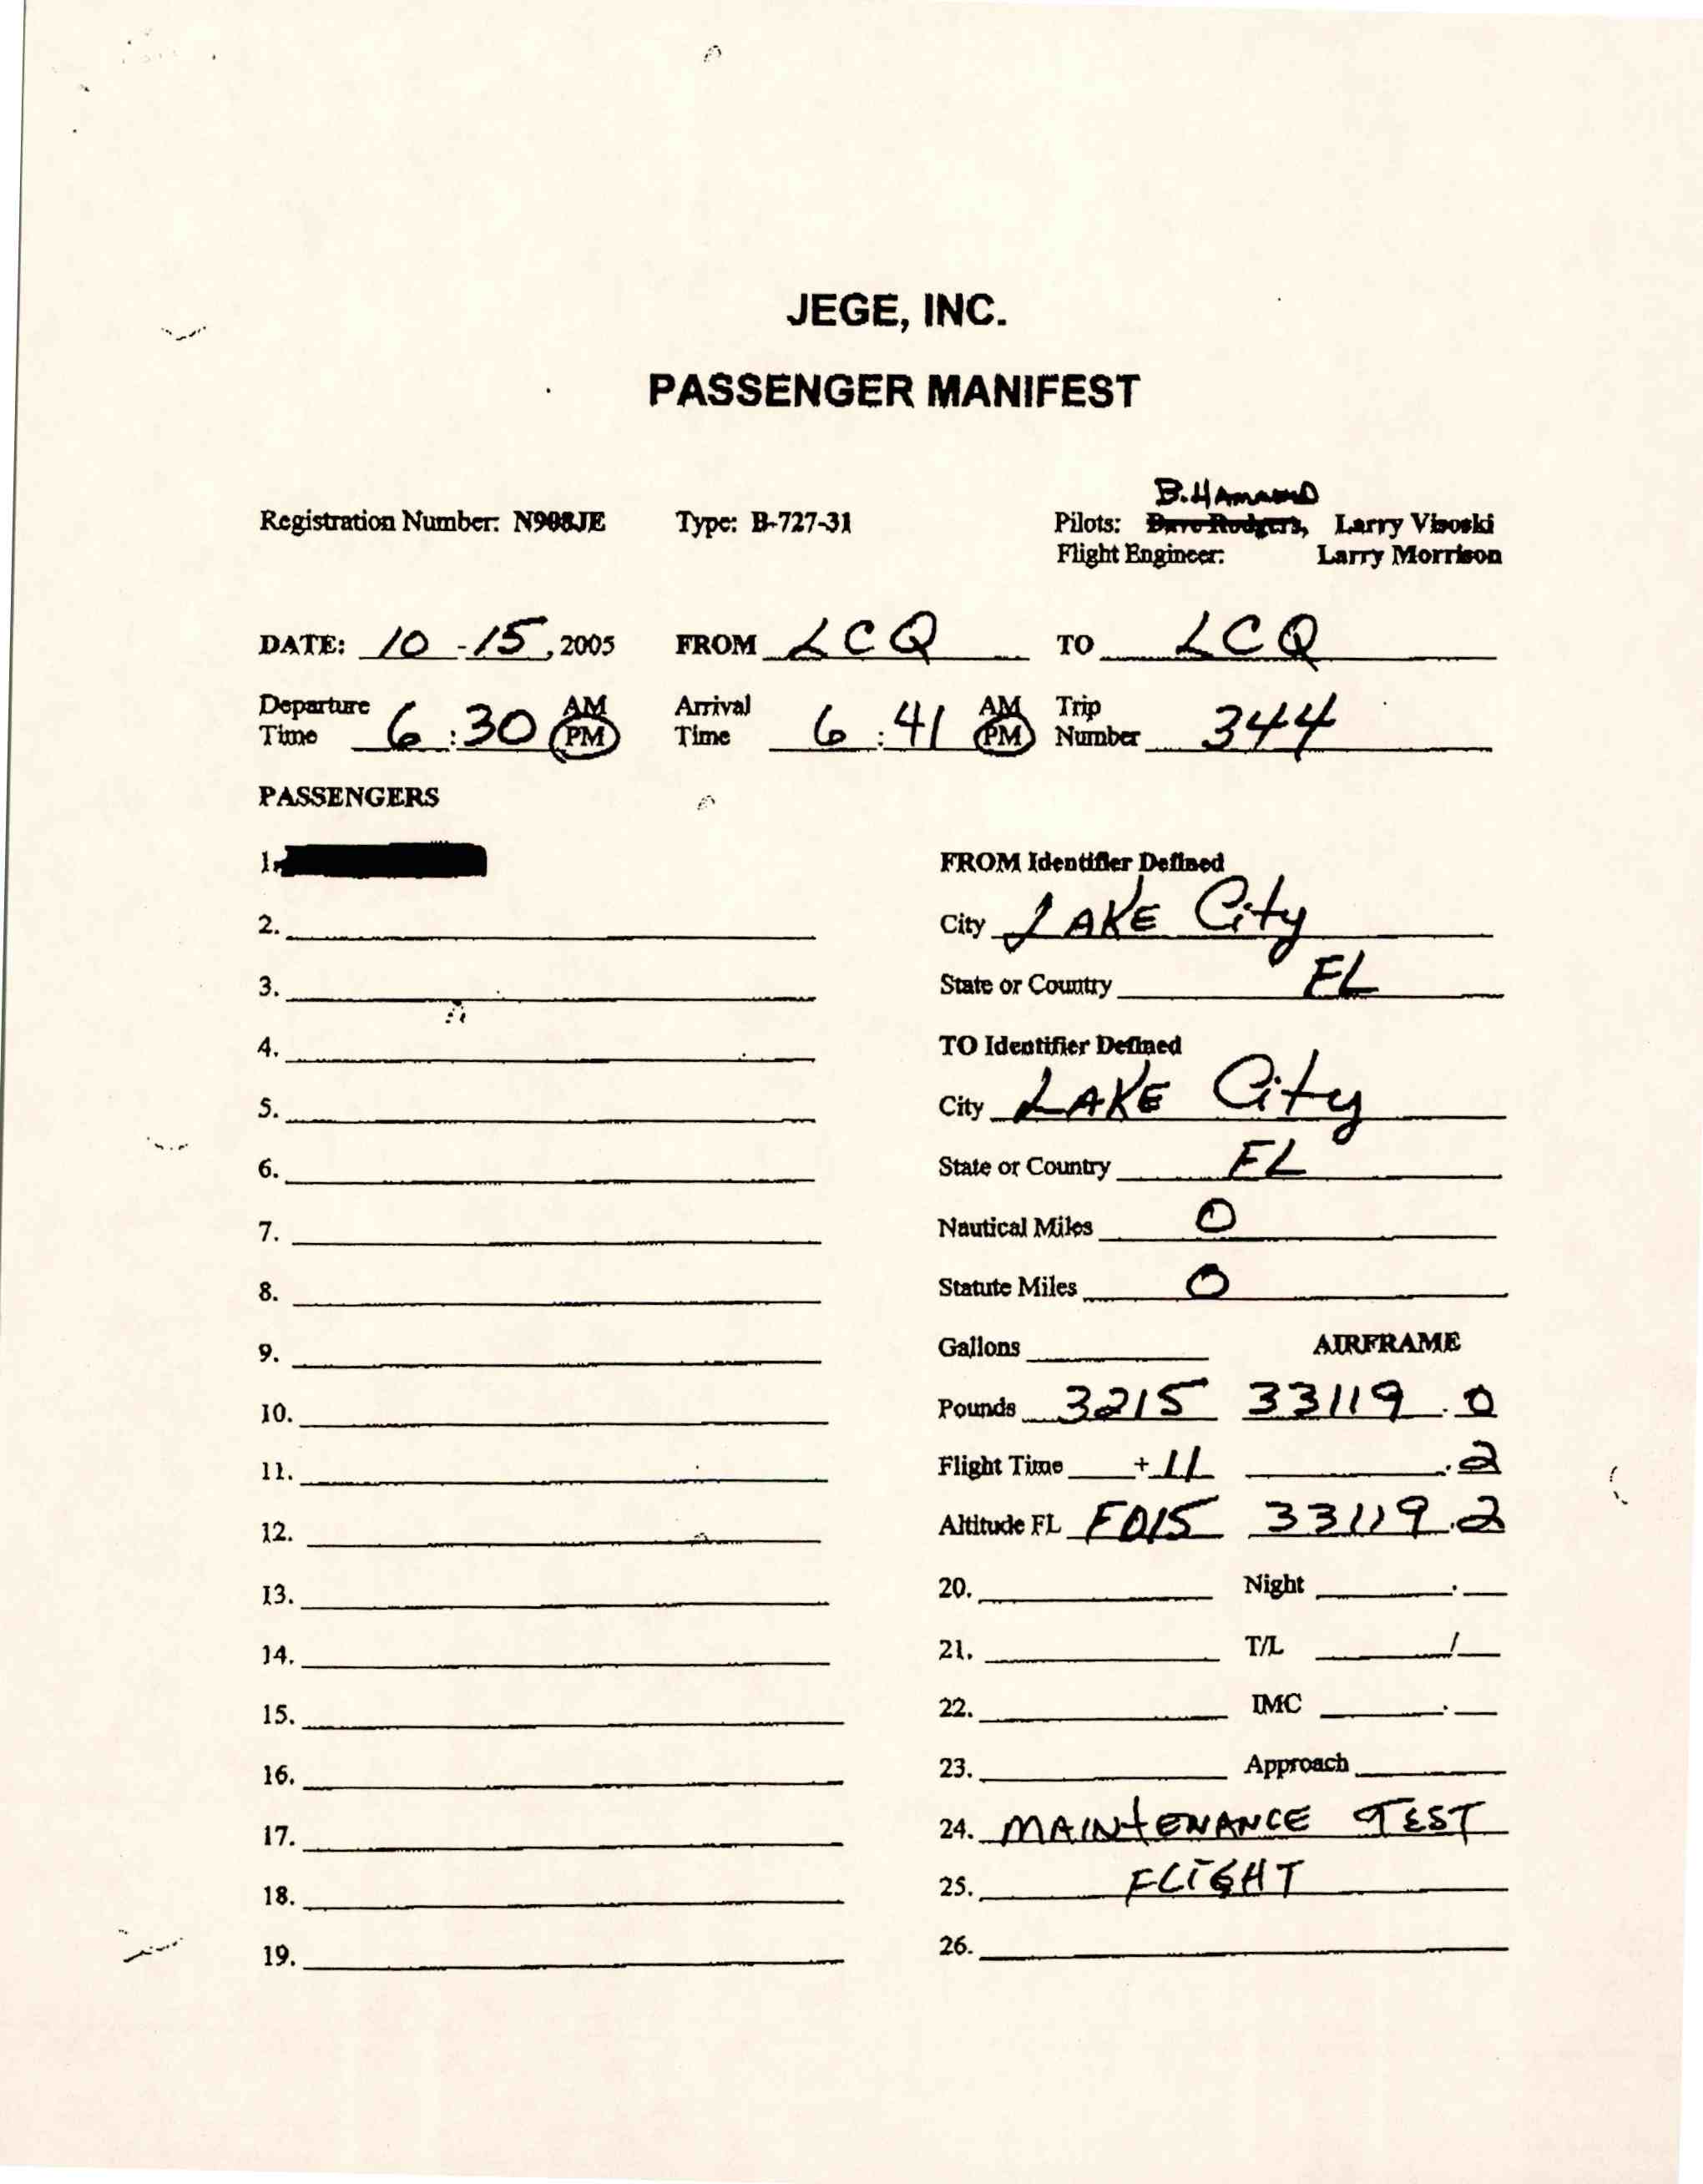 JEGE, INC.
PASSENGER MANIFEST
B. HAMMOND
Registration Number: N908JE Type: B-727-31 Pilots: Dave Rodgers, Larry Visoski
Flight Engineer: Larry Morrison
DATE: 10 - 15, 2005 FROM LCQ TO LCQ
Departure Time 6:30 AM PM Arrival Time 6:41 AM PM Trip Number 344
PASSENGERS
1.
2.
3.
4.
5.
6.
7.
8.
9.
10.
11.
12.
13.
14.
15.
16.
17.
18.
19.
FROM Identifier Defined
City LAKE City
State or Country FL
TO Identifier Defined
City LAKE City
State or Country FL
Nautical Miles 0
Statute Miles 0
Gallons AIRFRAME
Pounds 3215 33119.0
Flight Time + 11 .2
Altitude FL F015 33119.2
20. Night .
21. T/L /
22. IMC .
23. Approach
24. MAINTENANCE TEST
25. FLIGHT
26.